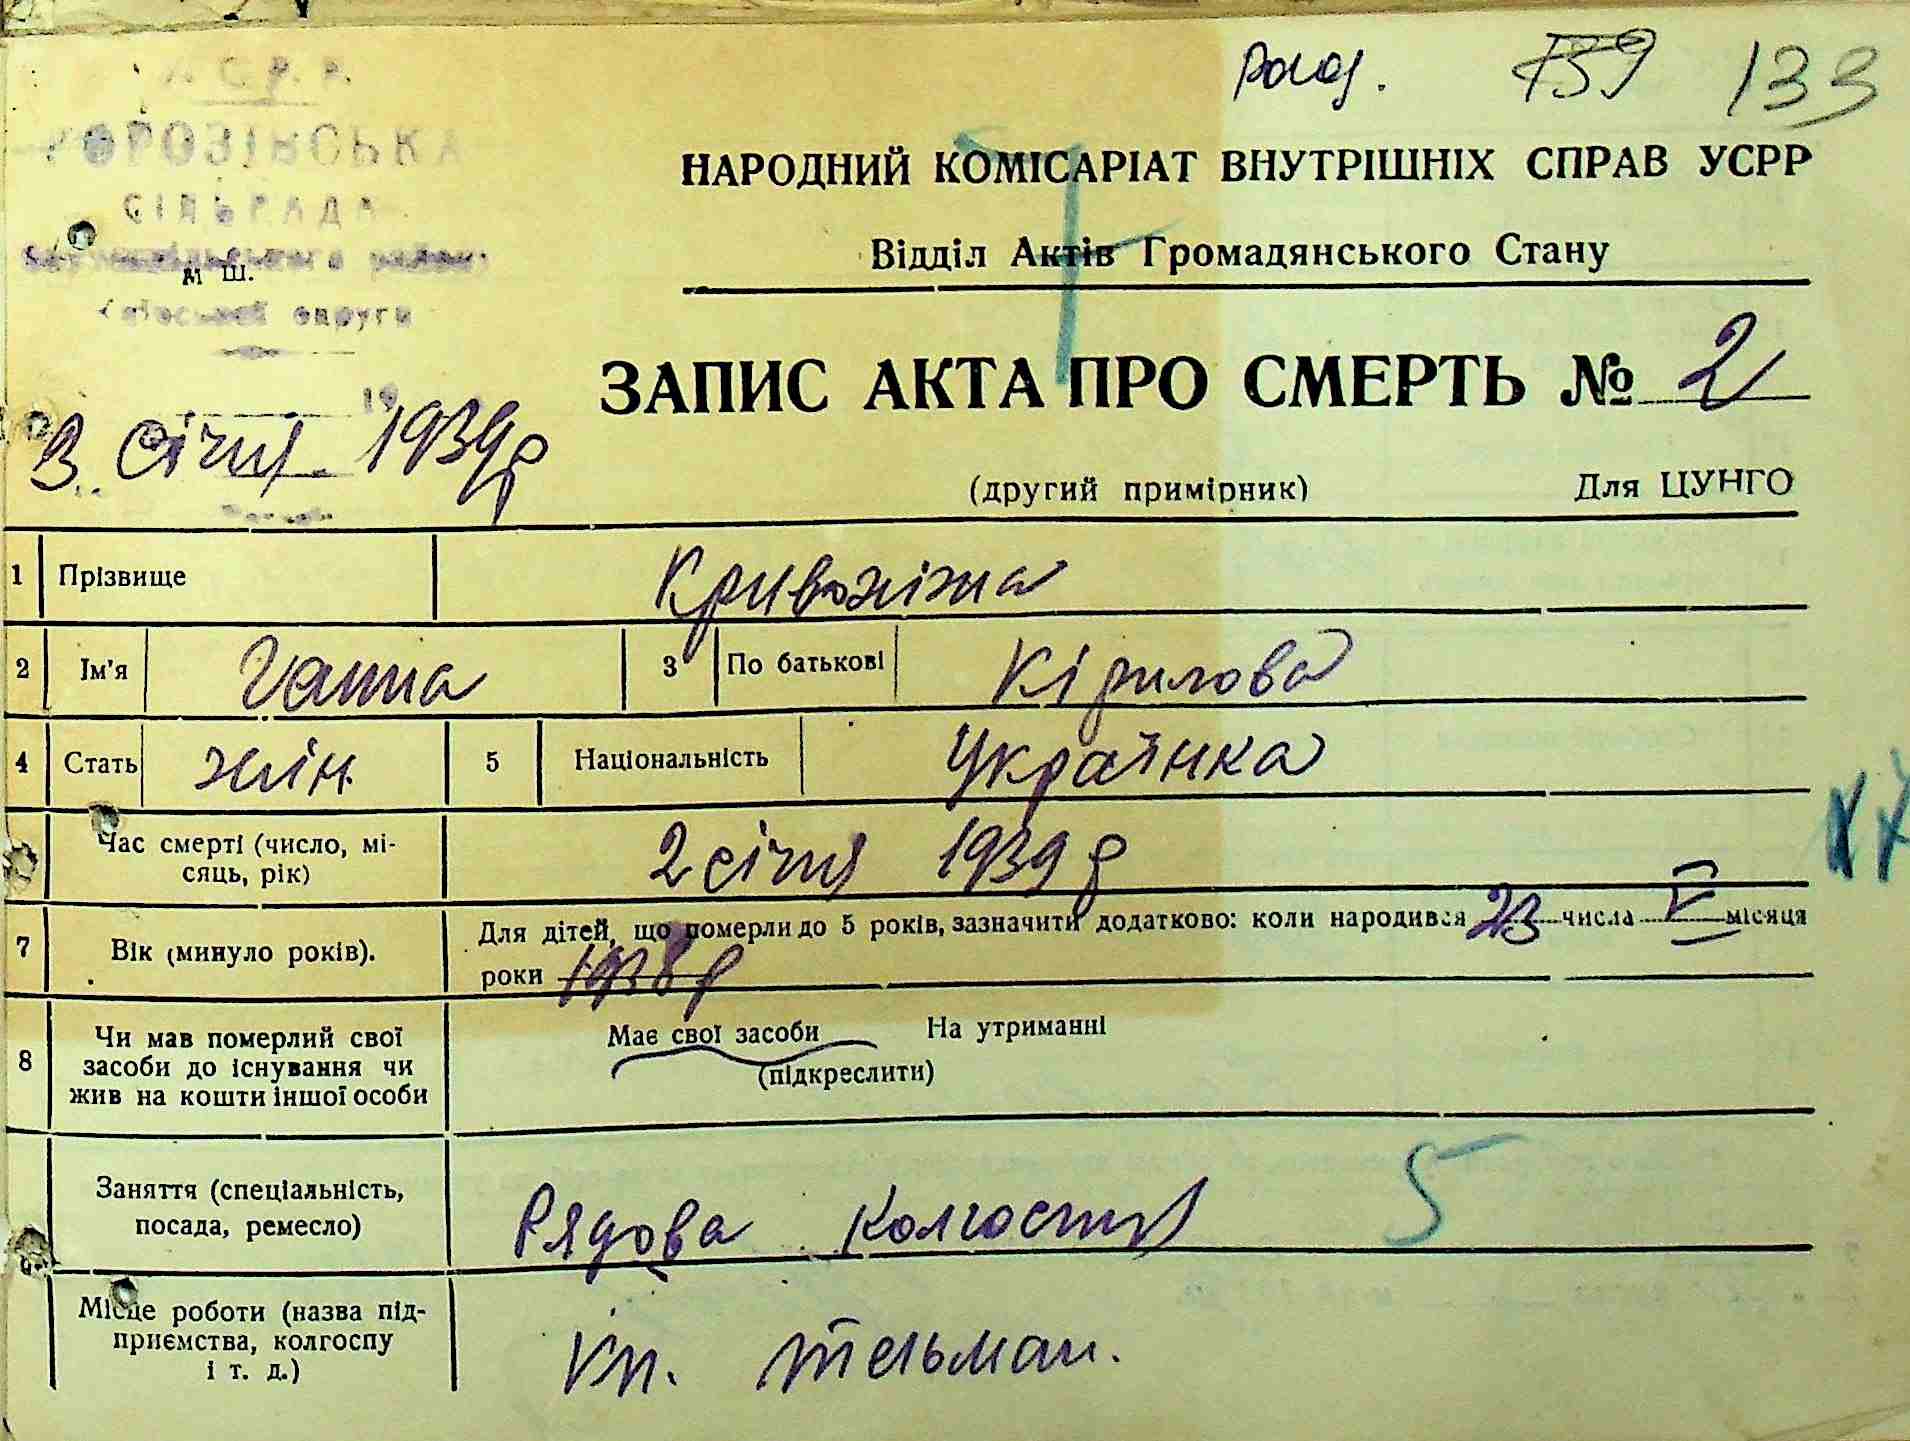 133
НАРОДНИЙ КОМІСАРІАТ ВНУТРІШНІХ СПРАВ УСРР
СІЛЬРАДА
Відділ Актів Громадянського Стану
м ш.
округи
ЗАПИС АКТА ПРО СМЕРТЬ № 2
3 січня 1939 р
(другий примірник) Для ЦУНГО
1 Прізвище Кривоніжна
2 Ім'я Ганна 3 По батькові Кірилова
4 Стать жін. 5 Національність Українка
Час смерті (число, мі-
сяць, рік) 2 січня 1939 р
7 Вік (минуло років). Для дітей, що померли до 5 років, зазначити додатково: коли народився 23 числа V місяця
роки 1938 р
8 Чи мав померлий свої
засоби до існування чи
жив на кошти іншої особи
Має свої засоби На утриманні
(підкреслити)
Заняття (спеціальність,
посада, ремесло) Рядова колгоспу
5
Місце роботи (назва під-
приємства, колгоспу
і т. д.) Тельман.